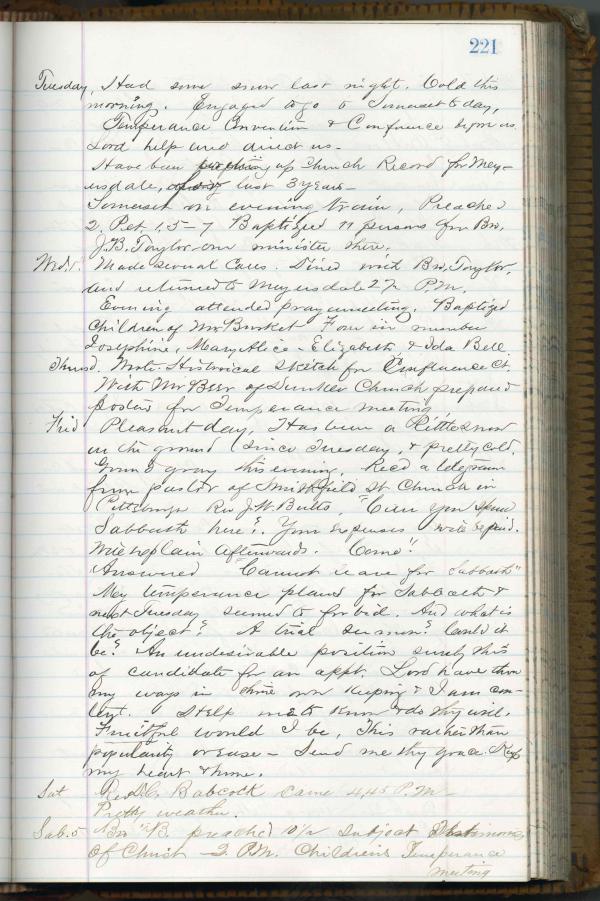 221
Tuesday, Had some snow last night. Cold this
morning. Engaged to go to Somerset to day,
Temperance Convention & Conference before us
Lord help and direct us -
Have been up Church Record for Mey-
ersdale, last 3 years -
Somerset on evening train, Preached
2. Pet. 1. 5-7 Baptized 11 persons for Bro.
J. B. Taylor - our minister there.
Wed. Made several Calls. Dined with Bro. Taylor,
and returned to Meyersdale 2 P.M.
Evening attended prayermeeting. Baptized
Children of Mr Burket Four in number
Josephine, Mary Alice - Elizabeth, & Ida Bell
Thurs. Wrote Historical Sketch for Confluence Ct.
With Mr Beer of Dunker Church prepared
posters for Temperance meeting
Frid Pleasant day, Has been a little snow
on the ground since Tuesday, & pretty cold.
this evening. Recd a telegram
from pastor of Smithfield St. Church in
Pittsburgh Rev J. W. Butts, "Can you spend
Sabbath here? Your expenses will be paid.
Will explain afterwards. Come".
Answered "Cannot leave for Sabbath"
My temperance plans for Sabbath &
next Tuesday seemed to forbid. And what is
the object? A trial sermon? Could it
be? An undesirable position surely this
of candidate for an appt. Lord have thou
my ways in thine own keeping & I am con-
tent. Help me to know & do thy will.
Fruitful would I be, This rather than
popularity or ease - Send me thy grace. Keep
my heart thine.
Sat Rev. Babcock came 4,45 P.M -
Pretty weather.
Sab. 5 Bro B. preached Subject
of Christ - 2. P.M. Children's Temperance
meeting